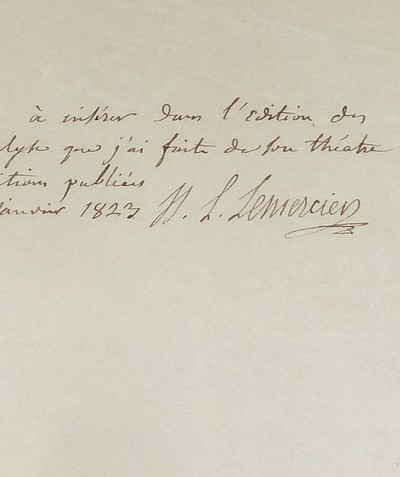 à insérer dans l'édition des
lyse que j'ai faite de son théâtre
itions publiées
Janvier 1823 N. L. Lemercier